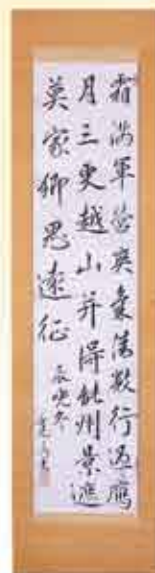 霜満軍営爽氣清数行過鴈
月三更越山并得能州景遮
莫家郷思遠征
辰晩冬